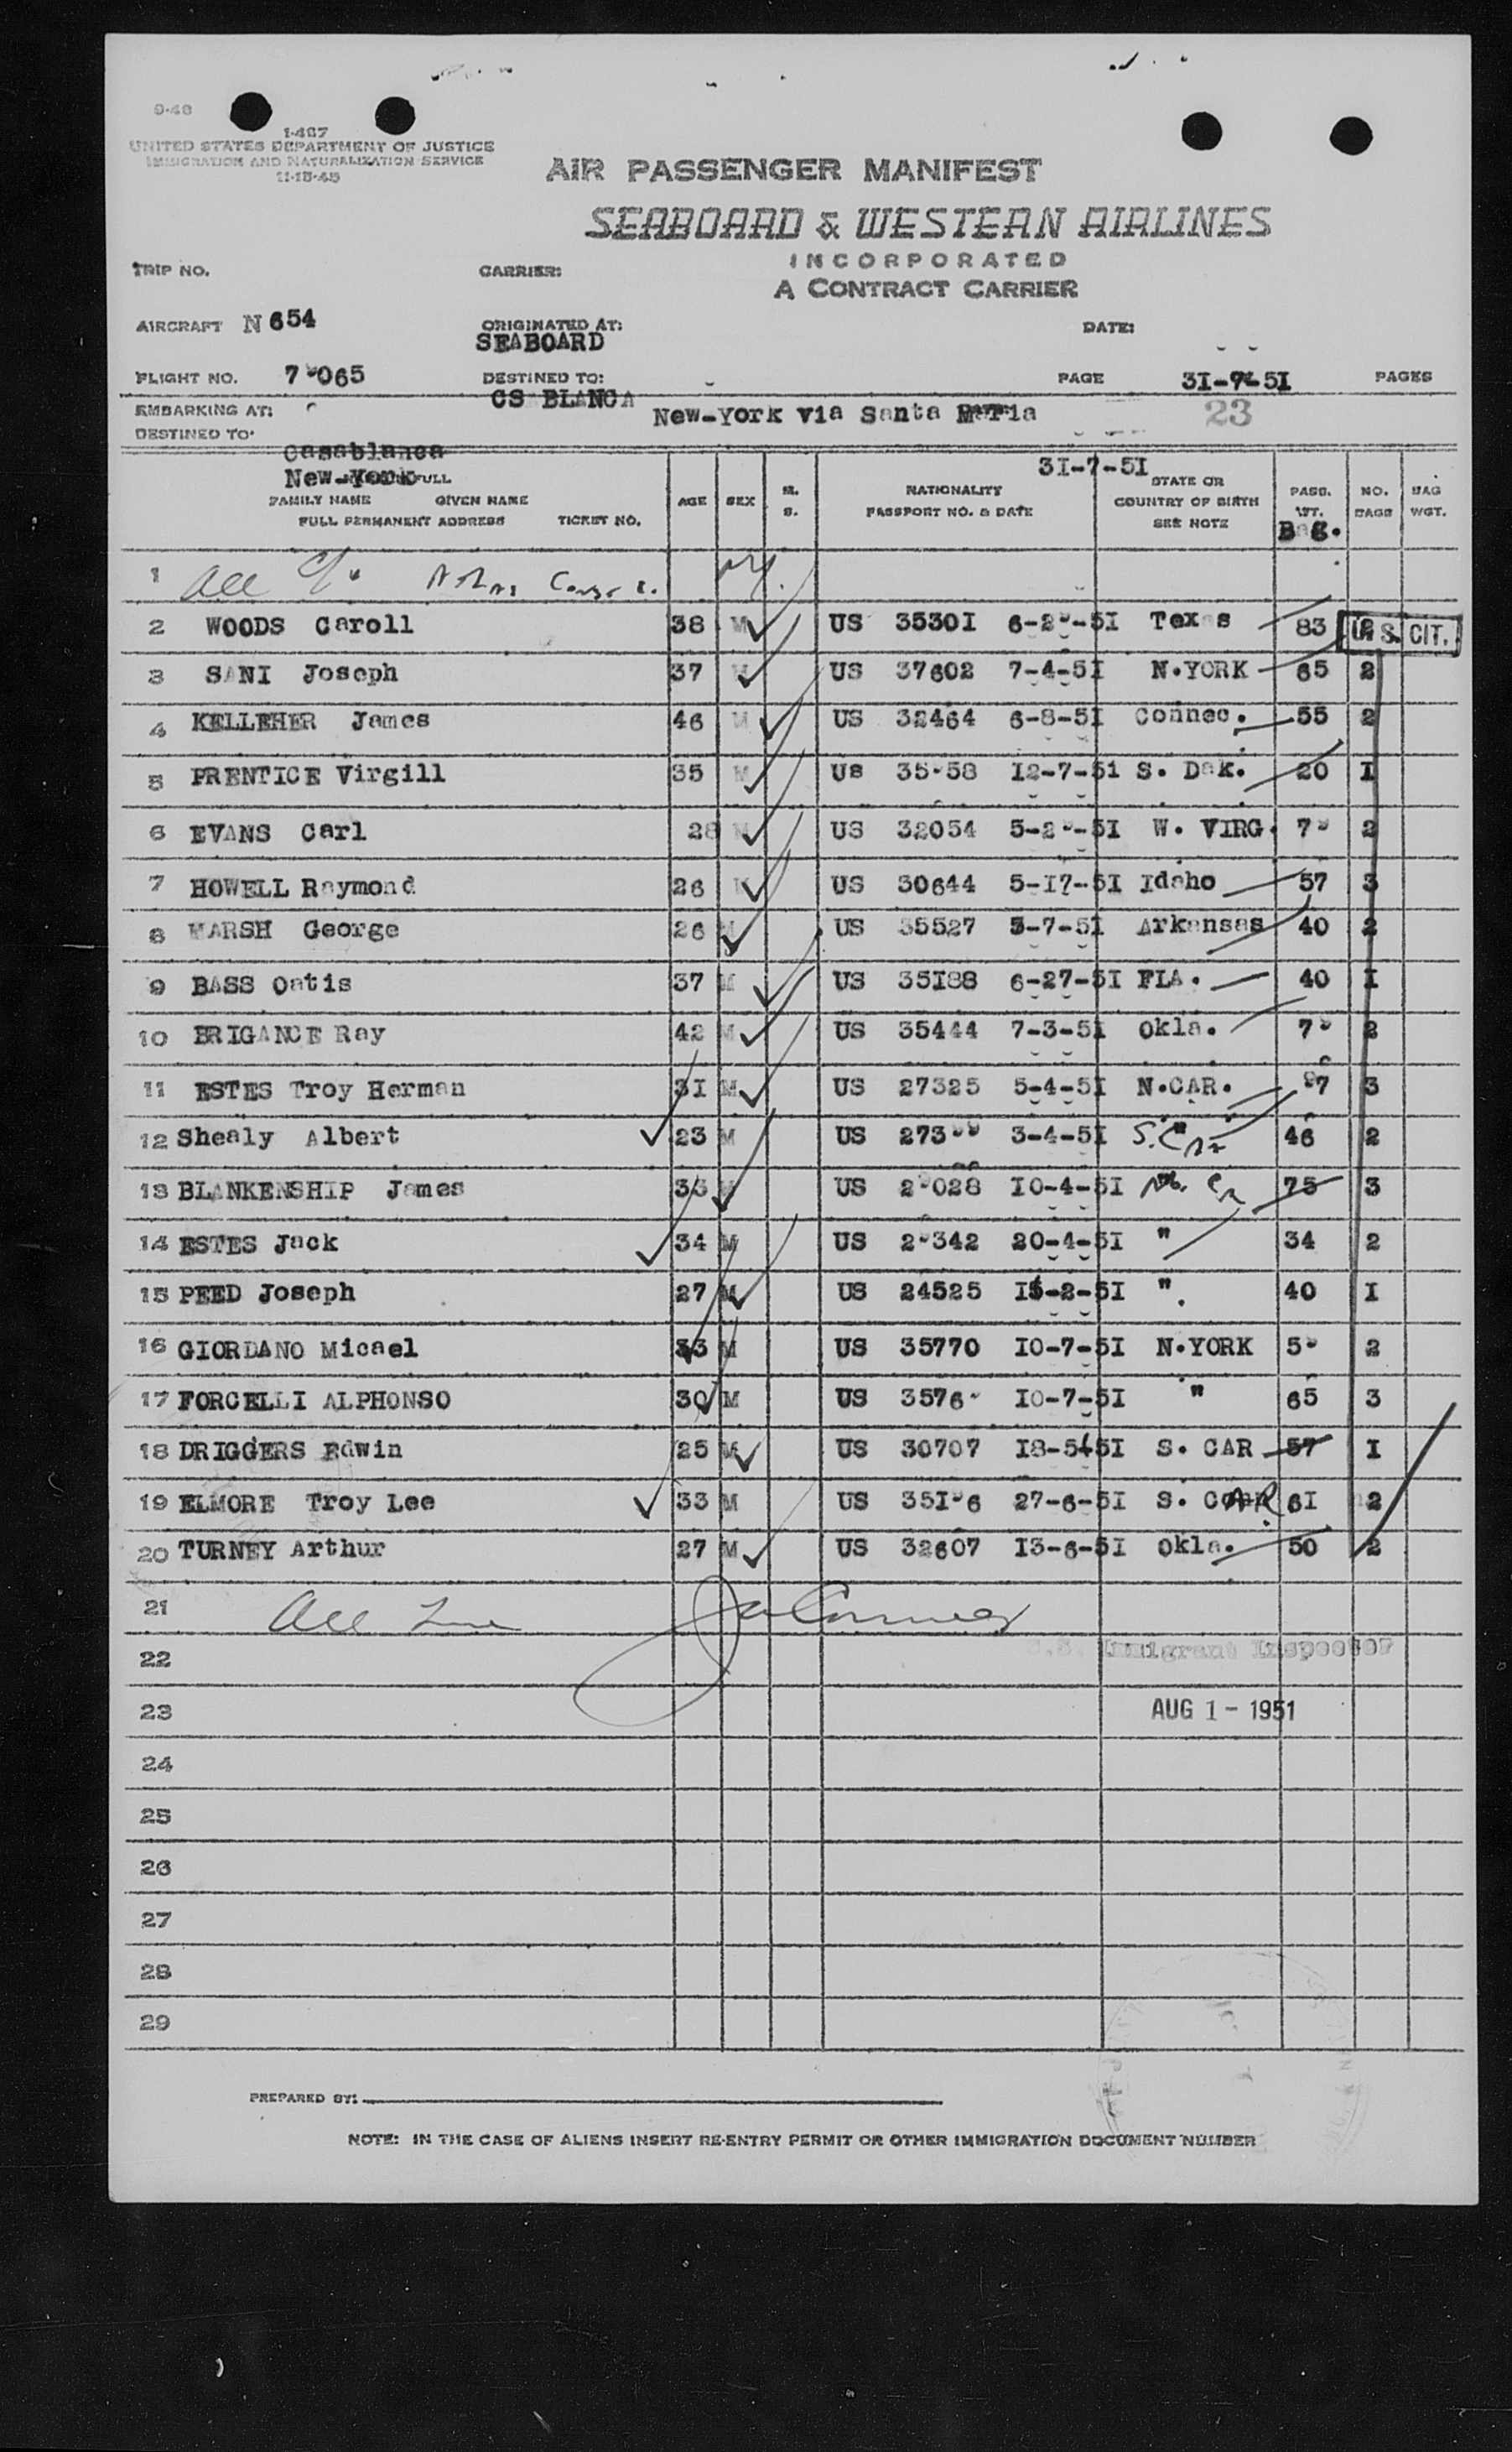 9-48
1-467
UNITED STATES DEPARTMENT OF JUSTICE
IMMIGRATION AND NATURALIZATION SERVICE
11-15-45
AIR PASSENGER MANIFEST
SEABOARD & WESTERN AIRLINES
INCORPORATED
A CONTRACT CARRIER
TRIP NO. CARRIER:
AIRCRAFT N 654 ORIGINATED AT: DATE:
SEABOARD
FLIGHT NO. 7 065 DESTINED TO: PAGE 31-7-51 PAGES
CS BLANCA
EMBARKING AT: New-York via Santa Maria 23
DESTINED TO:
Casablanca
New-York FULL 31-7-51
FAMILY NAME GIVEN NAME AGE SEX M. S. NATIONALITY STATE OR COUNTRY OF BIRTH SEE NOTE PASS. WT. NO. BAGS BAG WGT.
FULL PERMANENT ADDRESS TICKET NO. PASSPORT NO. & DATE
Bag.
1 All
2 WOODS Caroll 38 M US 35301 6-2 -51 Texas 83 2 U.S. CIT.
3 SANI Joseph 37 M US 37602 7-4-51 N.YORK 65 2
4 KELLEHER James 46 M US 32464 6-8-51 Connec. 55 2
5 PRENTICE Virgill 35 M Us 35 58 12-7-51 S. Dak. 20 I
6 EVANS Carl 28 M US 32054 5-2 -51 W. VIRG. 7 2
7 HOWELL Raymond 26 M US 30644 5-17-51 Idaho 57 3
8 MARSH George 26 M US 35527 3-7-51 Arkansas 40 2
9 BASS Oatis 37 M US 35188 6-27-51 FLA. 40 I
10 BRIGANCE Ray 42 M US 35444 7-3-51 Okla. 7 2
11 ESTES Troy Herman 31 M US 27325 5-4-51 N.CAR. 7 3
12 Shealy Albert 23 M US 273 3-4-51 " S. Car 46 2
13 BLANKENSHIP James 33 M US 2 028 10-4-51 75 3
14 ESTES Jack 34 M US 2 342 20-4-51 " 34 2
15 PEED Joseph 27 M US 24525 15-2-51 ". 40 I
16 GIORDANO Micael 33 M US 35770 10-7-51 N.YORK 5 2
17 FORCELLI ALPHONSO 30 M US 3576 10-7-51 " 65 3
18 DRIGGERS Edwin 25 M US 30707 18-5-51 S. CAR 57 I
19 ELMORE Troy Lee 33 M US 351 6 27-6-51 S. CAR 61 2
20 TURNEY Arthur 27 M US 32607 13-6-51 Okla. 50 2
21 All
22 U.S. Immigrant Inspector
23 AUG 1 - 1951
24
25
26
27
28
29
PREPARED BY:
NOTE: IN THE CASE OF ALIENS INSERT RE-ENTRY PERMIT OR OTHER IMMIGRATION DOCUMENT NUMBER